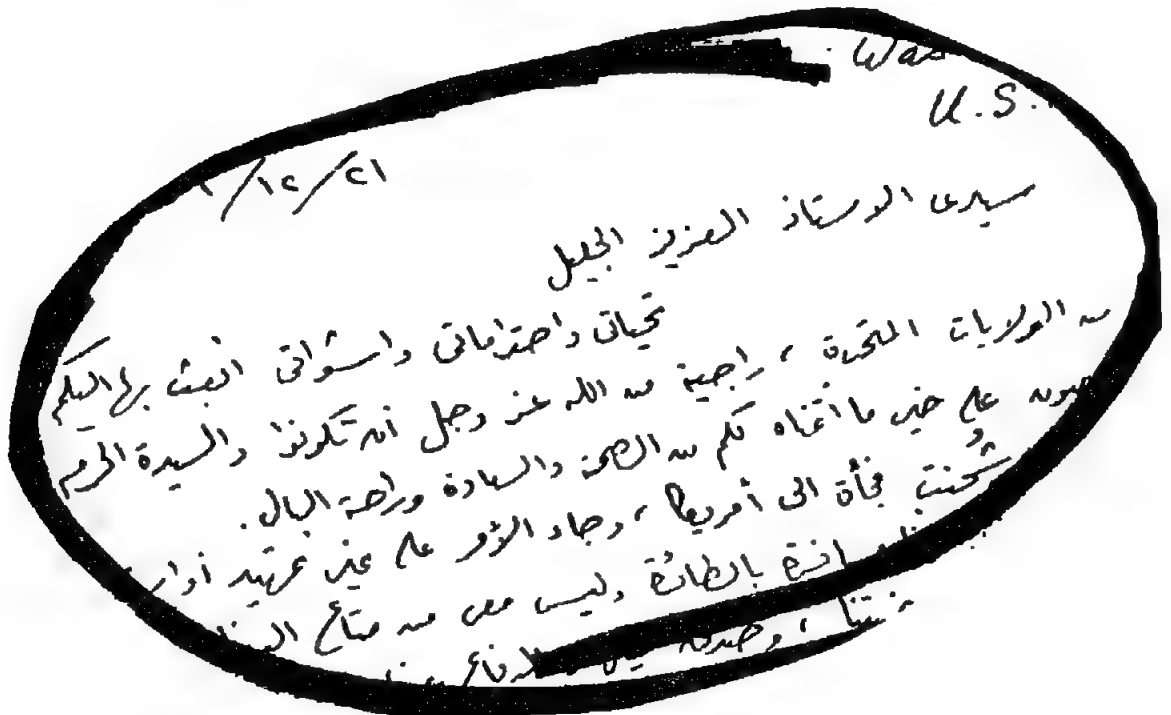 Was
U.S.
١٢/٢١/
سيدى الاستاذ العزيز الجليل
تحياتى واحتراماتى واشواقى ابعث بها اليكم
من الولايات المتحدة ، راجية من الله عز وجل ان تكونوا والسيدة الحرم
على خير ما أتمناه لكم من الصحة والسعادة وراحة البال .
شُحنت فجأة الى أمريكا ، وجاء الأمر على غير تمهيد أو
بالطائرة وليس معى من متاع